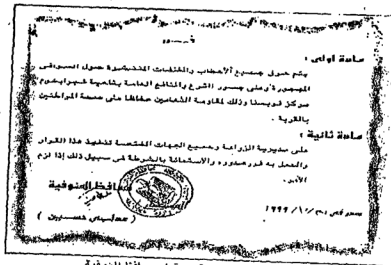 قـــرر
مادة أولى :
يتم حرق جميع الأحطاب والمخلفات المنتشرة حول السواقى
المهجورة وعلى جسور الترع والمنافع العامة بناحية شبرابخوم
مركز قويسنا وذلك لمقاومة الثعابين حفاظا على صحة المواطنين
بالقرية .
مادة ثانية :
على مديرية الزراعة وجميع الجهات المختصة تنفيذ هذا القرار
والعمل به فور صدوره والاستعانة بالشرطة فى سبيل ذلك إذا لزم
الأمر .
محافظ المنوفية
صدر فى / ١٠ / ١٩٩٩
( عدلى حسين )